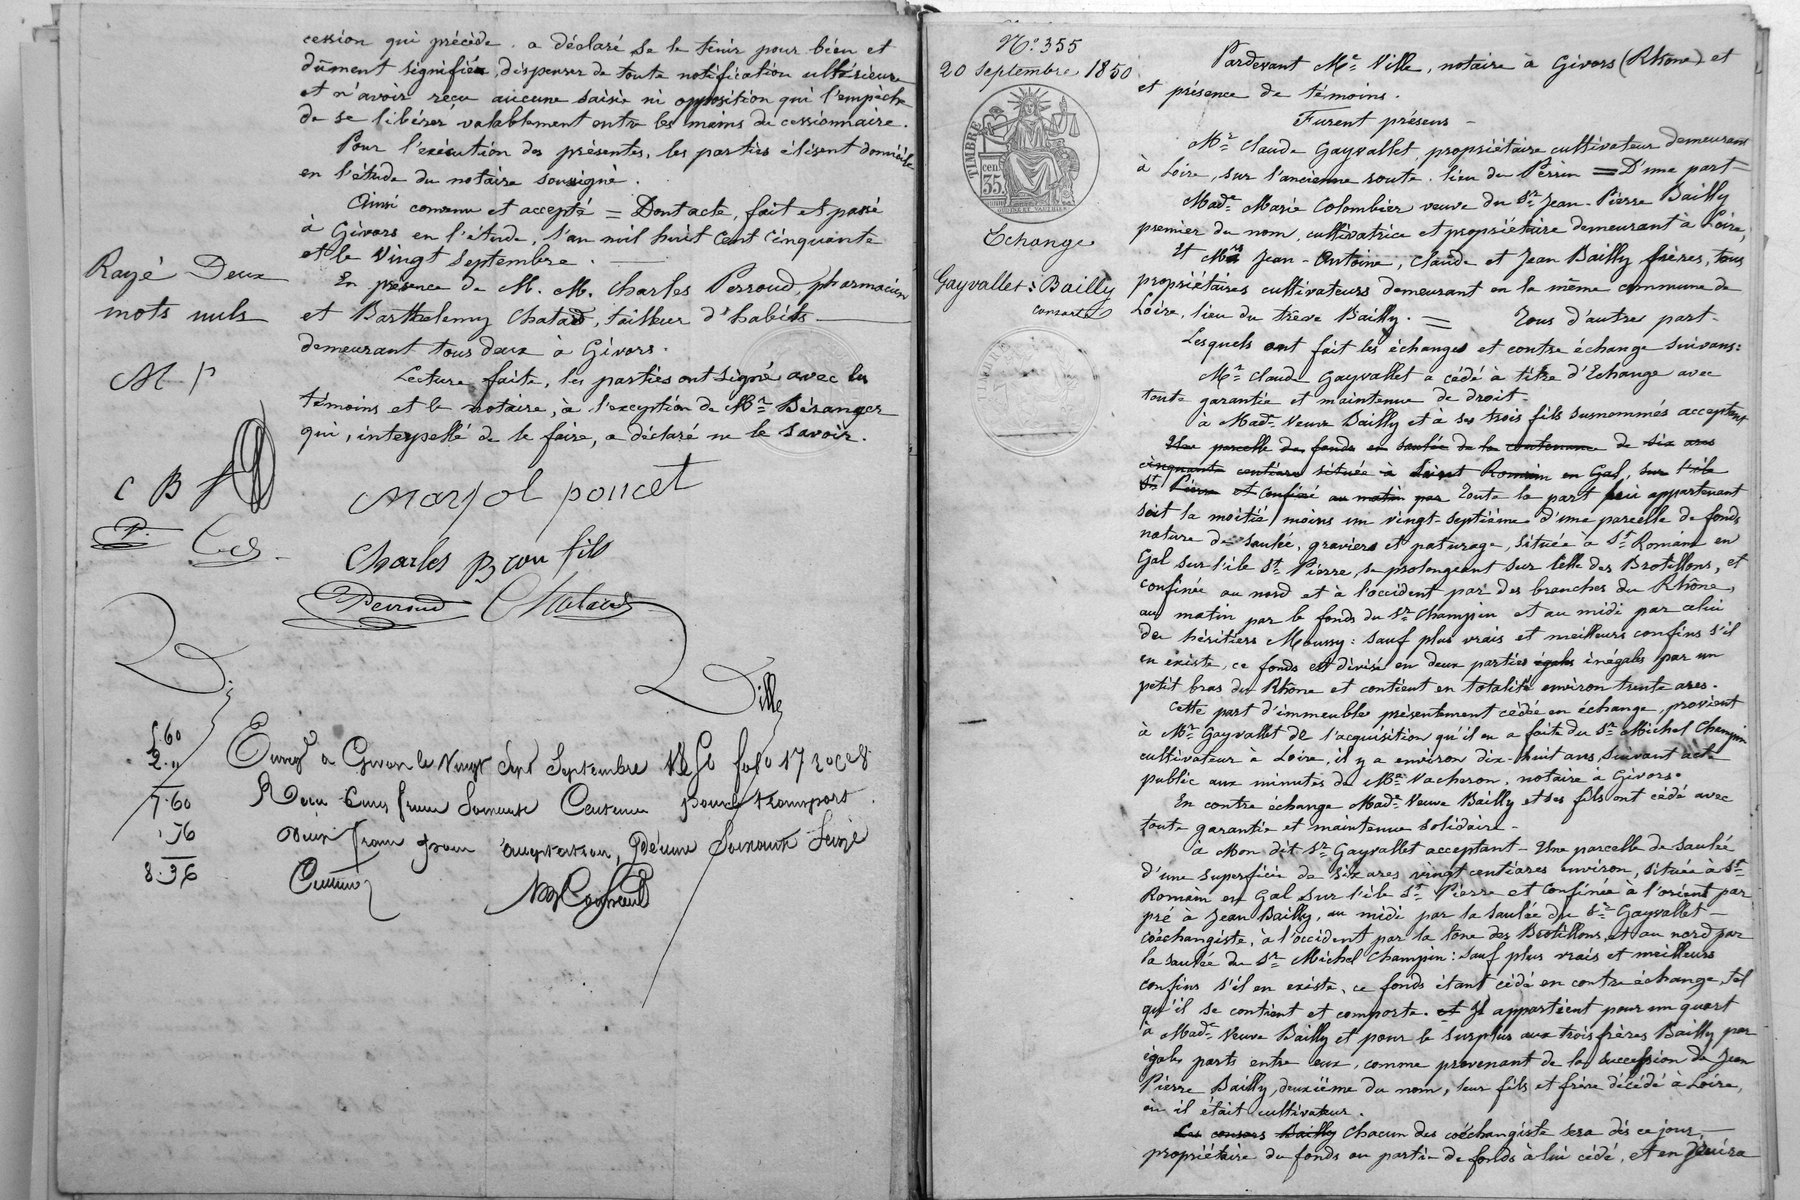 cession qui précède. a déclaré se le tenir pour bien et
dûment signifié, dispenser de toute notification ultérieure
et n'avoir reçu aucune saisie ni opposition qui l'empêche
de se libérer valablement entre les mains du cessionnaire.
Pour l'exécution des présentes, les parties élisent domicile
en l'étude du notaire soussigné.
Ainsi convenu et accepté = Dont acte, fait et passé
à Givors en l'étude, l'an mil huit cent cinquante
et le vingt septembre.
En présence de M. M. Charles Perroud, pharmacien
et Barthelemy Chatard, tailleur d'habits
demeurant tous deux à Givors.
Lecture faite, les parties ont signé avec les
témoins et le notaire, à l'exception de Mr Béranger
qui, interpellé de le faire, a déclaré ne le savoir.
Rayé Deux
mots nuls
M P
C B f
P.
Marjol poncet
Charles Brou fils
Perroud
Ville
5.60
2."
7.60
.76
8.36
Enreg. à Givors le vingt sept Septembre 1850 folo 17
Reçu cinq francs soixante centimes pour transport.
Deux francs pour Décime soixante seize
Centimes
No. 355
20 Septembre 1850
TIMBRE
cen
35
Echange
Gayvallet = Bailly
consorts
Pardevant Me Ville, notaire à Givors (Rhône) et
et présence de témoins.
Furent présens
Mr Claude Gayvallet, propriétaire cultivateur demeurant
à Loire, sur l'ancienne route, lieu du Perrin = D'une part
Made Marie Colombier veuve du Sr Jean-Pierre Bailly
premier du nom, cultivatrice et propriétaire demeurant à Loire,
Et Mrs Jean-Antoine, Claude et Jean Bailly frères, tous
propriétaires cultivateurs demeurant en la même commune de
Loire, lieu du trève Bailly. = Tous d'autre part.
Lesquels ont fait les échanges et contre échange suivans:
Mr Claude Gayvallet a cédé à titre d'Echange avec
toute garantie et maintenue de droit.
à Made Veuve Bailly et à ses trois fils susnommés acceptant
Une parcelle de fonds en saulée de la contenance de six ares
cinquante centiares située à Saint Romain en Gal, sur l'ile
St Pierre et confiné au matin par Toute la part lui appartenant
soit la moitié moins un vingt-septième d'une parcelle de fonds
nature de saulée, graviers et paturage, située à St Romain en
Gal sur l'ile St Pierre, se prolongeant sur l'ile des Brotillons, et
confinée au nord et à l'occident par des branches du Rhône,
au matin par le fonds du Sr Champin et au midi par celui
des héritiers Moussy: sauf plus vrais et meilleurs confins s'il
en existe, ce fonds est divisé en deux parties égales inégales par un
petit bras du Rhône et contient en totalité environ trente ares.
Cette part d'immeubles présentement cédée en échange, provient
à Mr Gayvallet de l'acquisition qu'il en a faite du Sr Michel Champin
cultivateur à Loire, il y a environ dix-huit ans, suivant acte
public aux minutes de Me Vacheron, notaire à Givors.
En contre échange Made Veuve Bailly et ses fils ont cédé avec
toute garantie et maintenue solidaire.
à Mon dit Sr Gayvallet acceptant - Une parcelle de saulée
d'une superficie de six ares vingt centiares environ, située à St
Romain en Gal sur l'ile St Pierre et confinée à l'orient par
pré à Jean Bailly, au midi par la saulée du Sr Gayvallet
coéchangiste, à l'occident par la lone des Brotillons, et au nord par
la saulée du Sr Michel Champin: sauf plus vrais et meilleurs
confins s'il en existe, ce fonds étant cédé en contre échange, tel
qu'il se contient et comporte. et Il appartient pour un quart
à Made Veuve Bailly et pour le surplus aux trois frères Bailly par
égales parts entre eux, comme provenant de la succession de Jean
Pierre Bailly, deuxième du nom, leur fils et frère décédé à Loire,
où il était cultivateur.
Les consors Bailly Chacun des coéchangiste sera dès ce jour
propriétaire du fonds ou partie de fonds à lui cédé, et en jouira